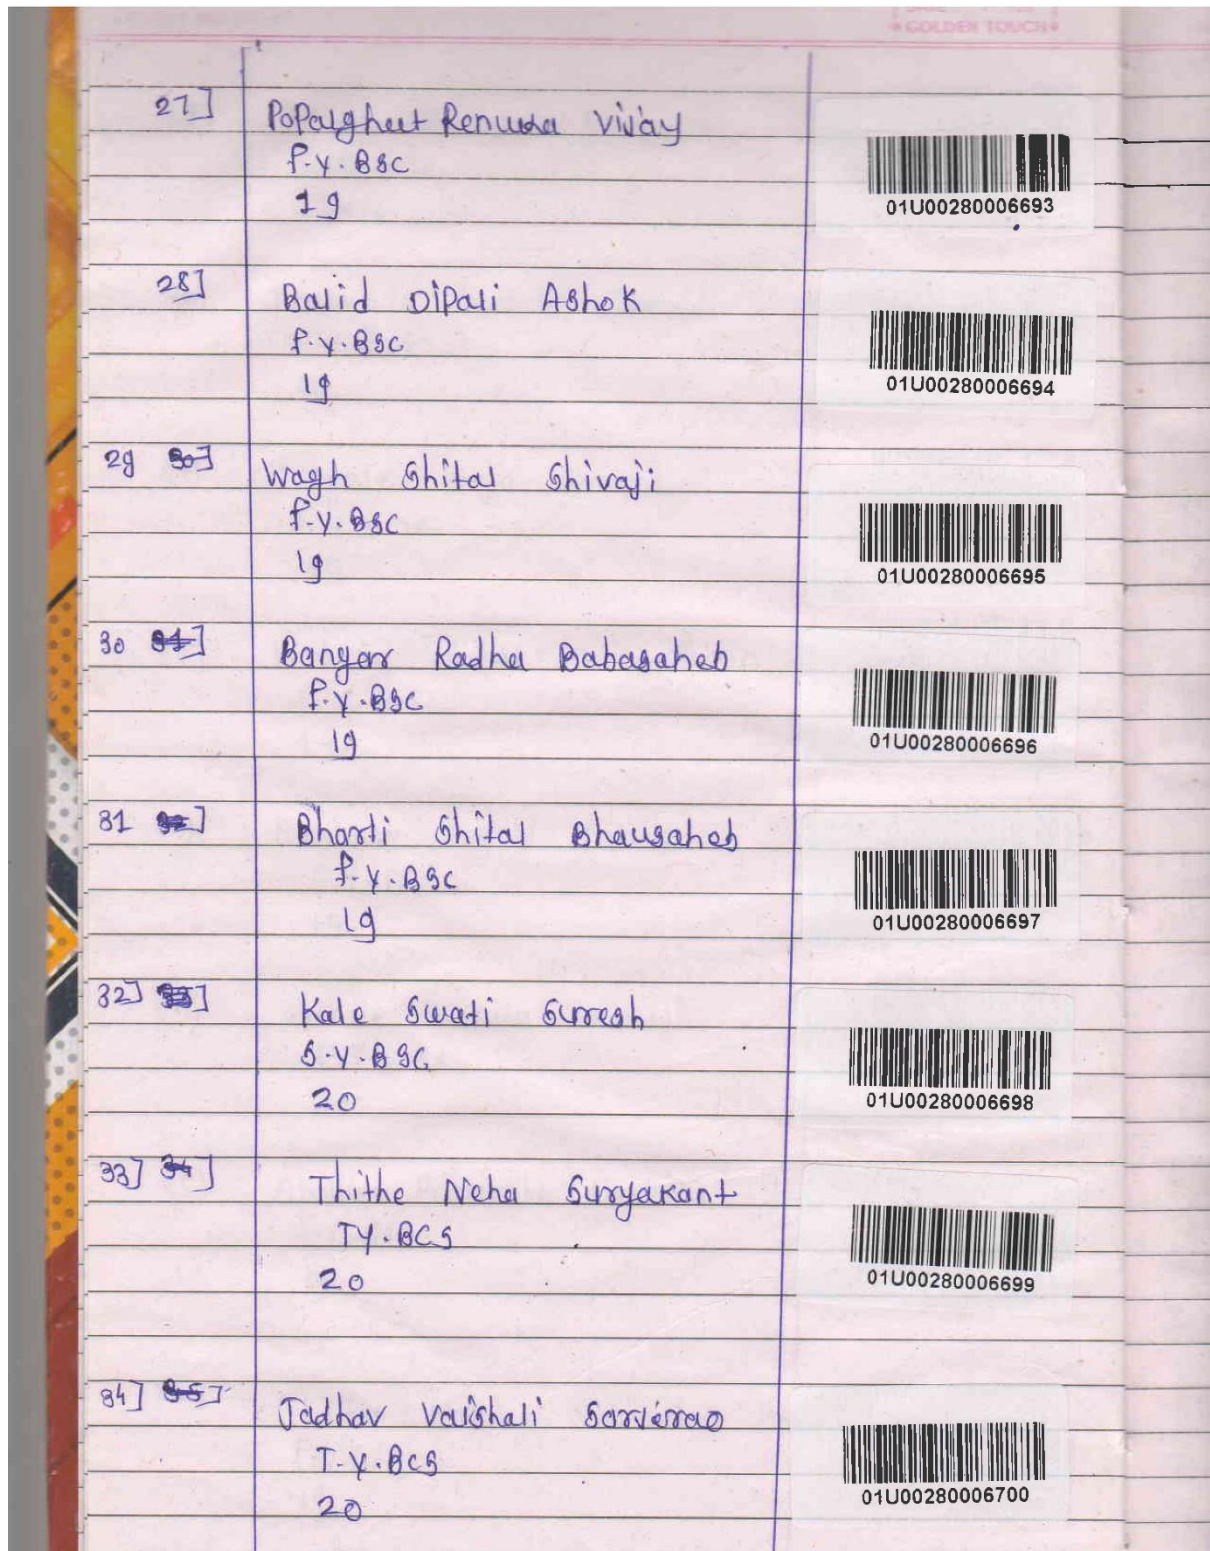 GOLDEN TOUCH
27]
Popalghat Renuka Vijay
F.Y.BSC
19
01U00280006693
28]
Balid Dipali Ashok
F.Y.BSC
19
01U00280006694
29 30]
Wagh Shital Shivaji
F.Y.BSC
19
01U00280006695
30 31]
Bangar Radha Babasaheb
F.Y.BSC
19
01U00280006696
31 32]
Bharti Shital Bhausaheb
F.Y.BSC
19
01U00280006697
32] 33]
Kale Swati Suresh
S.Y.BSC
20
01U00280006698
33] 34]
Thithe Neha Suryakant
TY.BCS
20
01U00280006699
34] 35]
Jadhav Vaishali
T.Y.BCS
20
01U00280006700